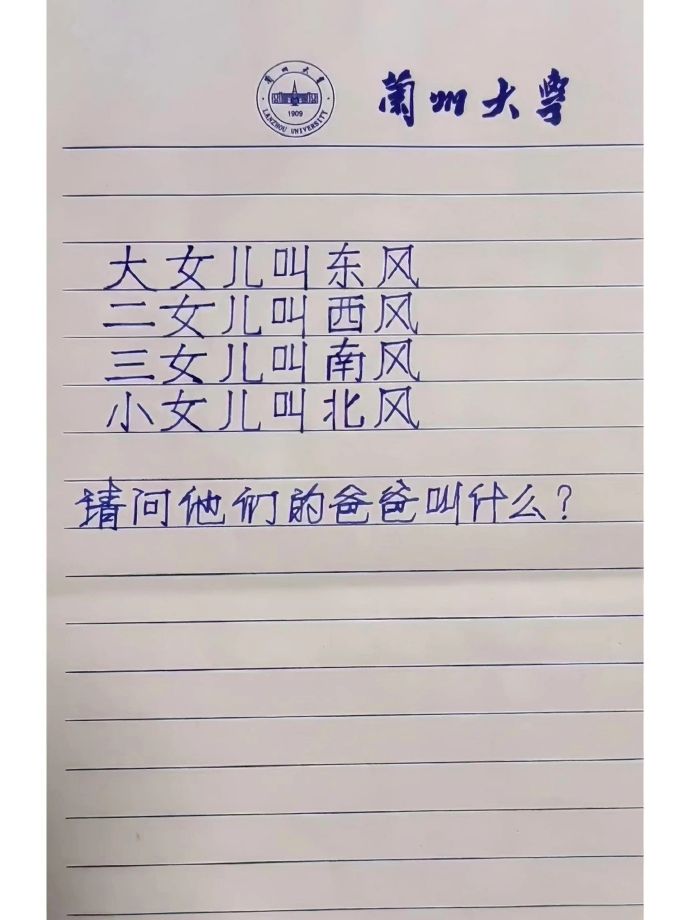 兰州大学
1909
LANZHOU UNIVERSITY
蘭州大學
大女儿叫东风
二女儿叫西风
三女儿叫南风
小女儿叫北风
请问他们的爸爸叫什么？